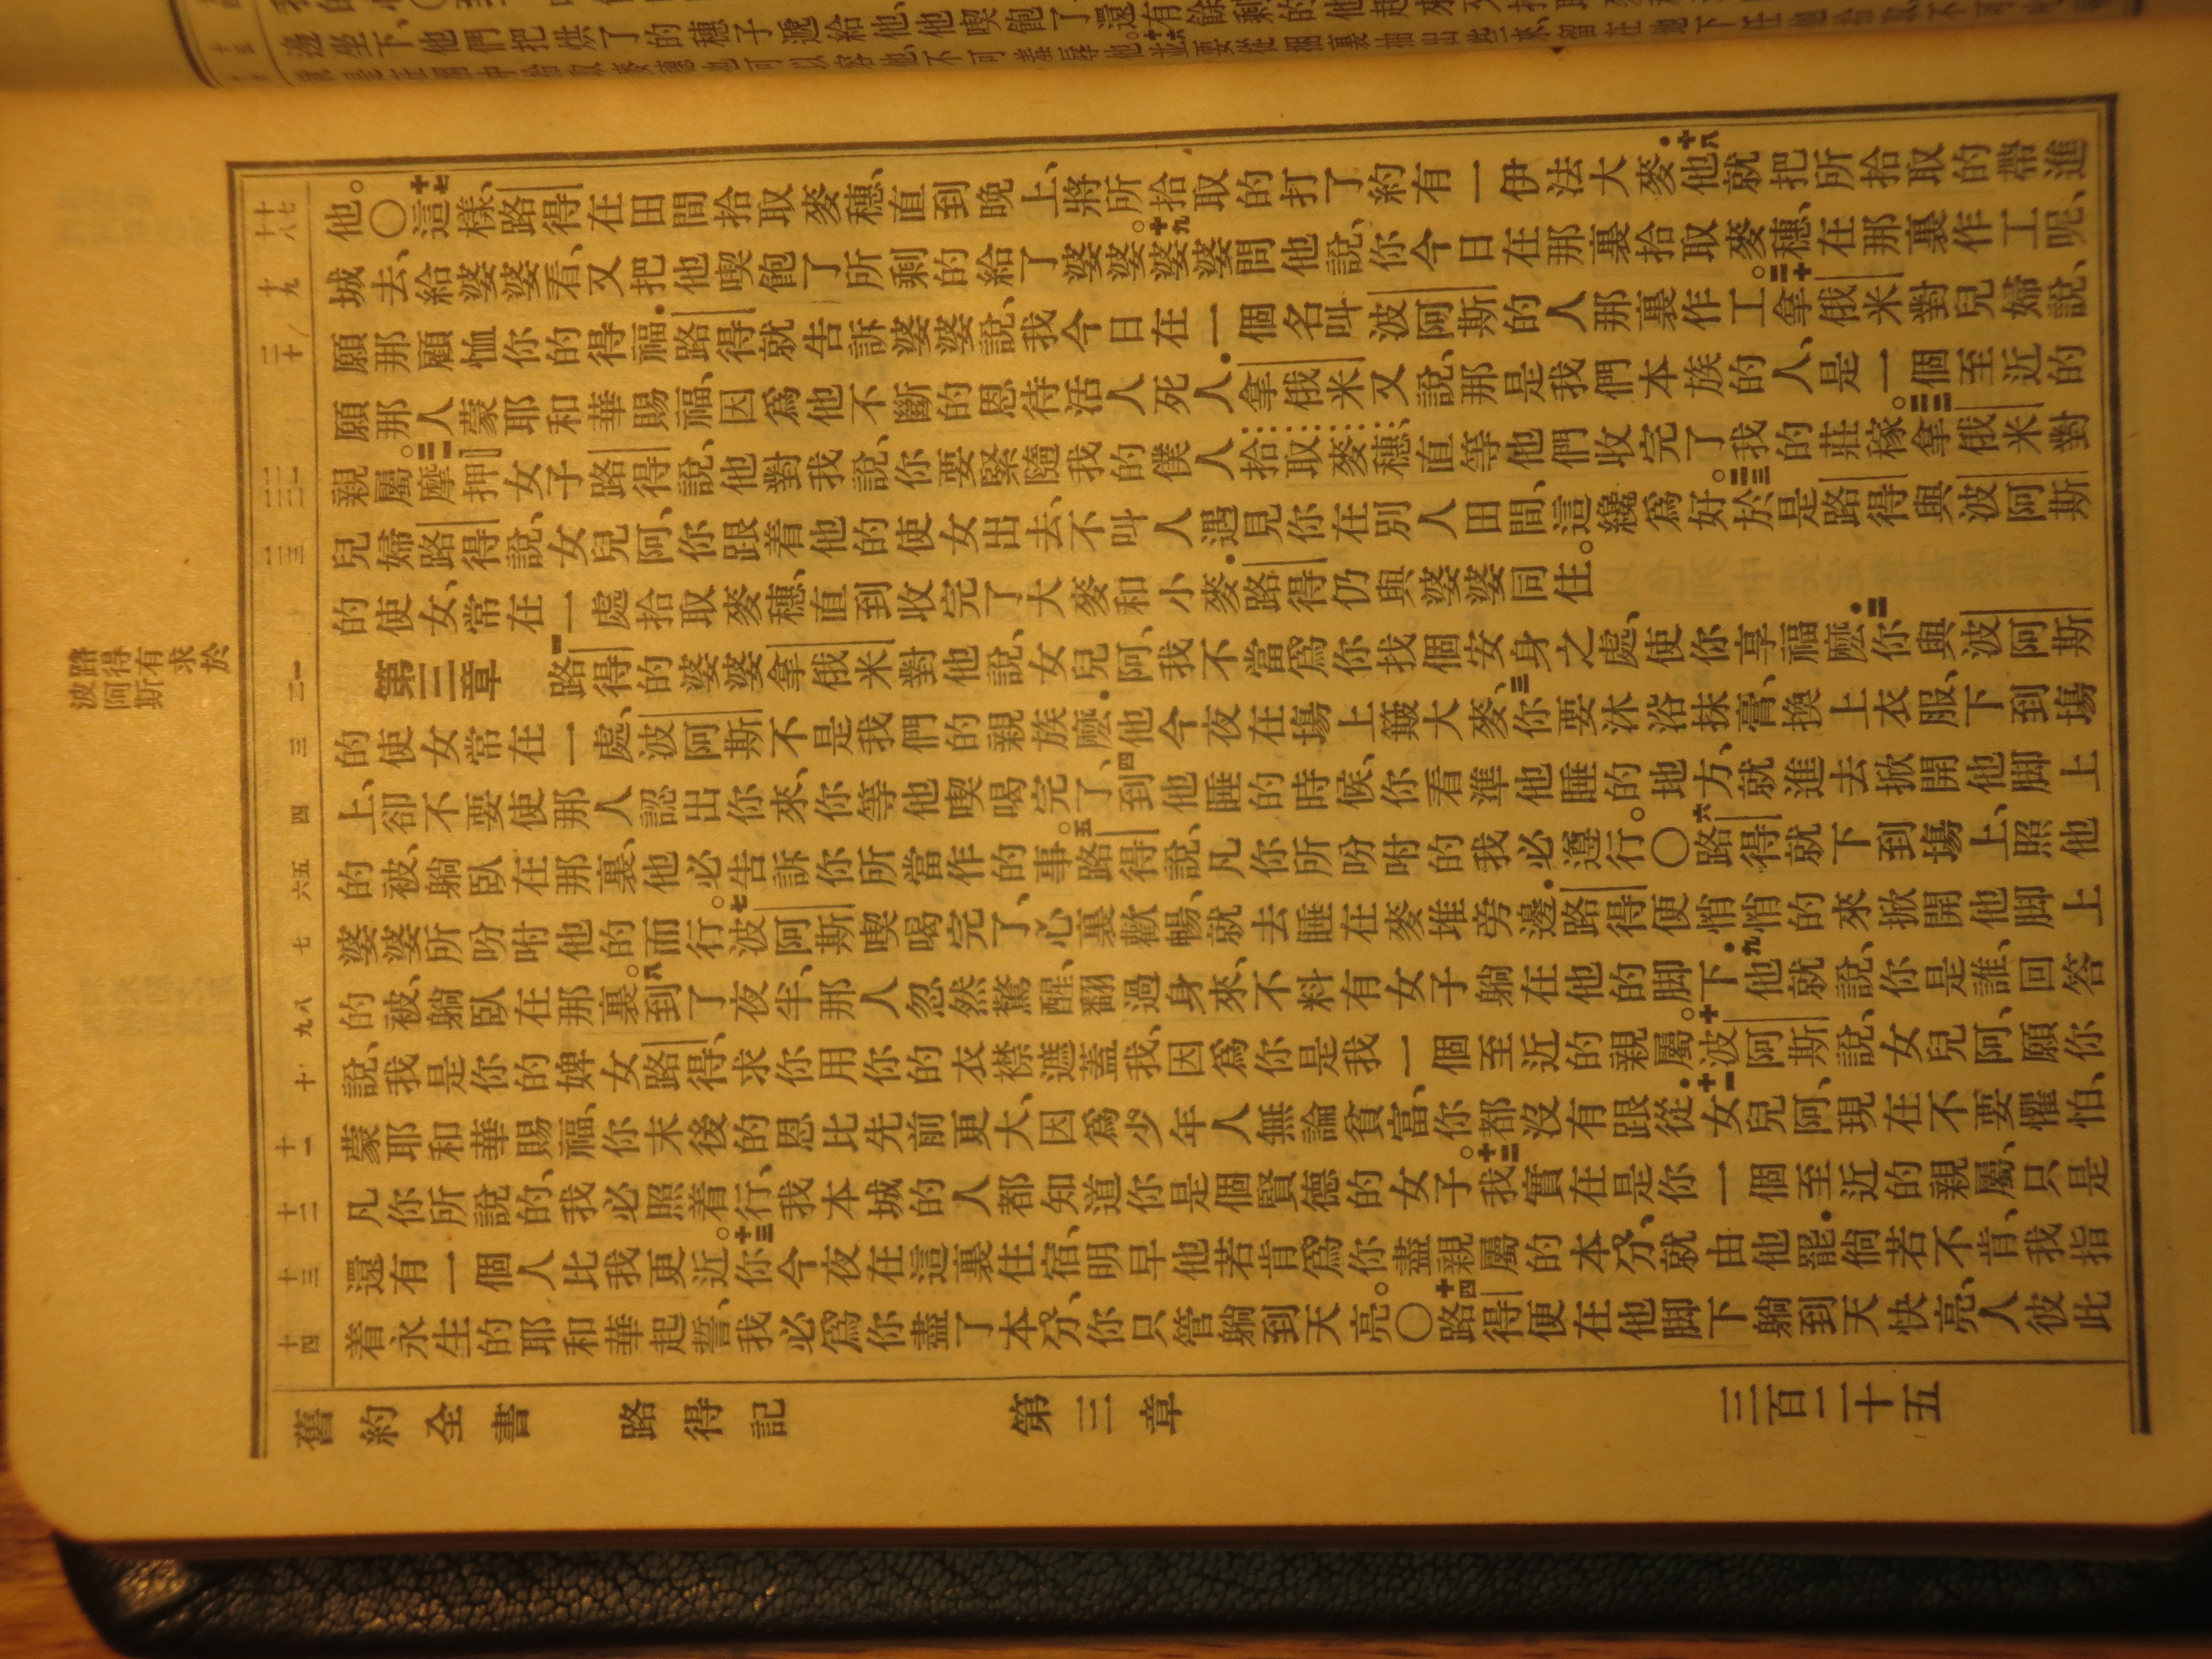 邊坐下、他們把烘了的穗子遞給他、他喫飽了、還有餘剩的
路得有求於
波阿斯
十七 十八
十九
二十
二一 二二
二三
一 二
三
四
五 六
七
八 九
十
十一
十二
十三
十四
他。〇十七這樣、路得在田間拾取麥穗、直到晚上、將所拾取的打了約有一伊法大麥.十八他就把所拾取的帶進
城去、給婆婆看、又把他喫飽了所剩的給了婆婆。十九婆婆問他說、你今日在那裏拾取麥穗、在那裏作工呢、
願那顧恤你的得福.路得就告訴婆婆說、我今日在一個名叫波阿斯的人那裏作工。二十拿俄米對兒婦說、
願那人蒙耶和華賜福、因爲他不斷的恩待活人死人.拿俄米又說、那是我們本族的人、是一個至近的
親屬。二一摩押女子路得說、他對我說、你要緊隨我的僕人拾取麥穗、直等他們收完了我的莊稼。二二拿俄米對
兒婦路得說、女兒阿、你跟着他的使女出去、不叫人遇見你在別人田間、這纔爲好。二三於是路得與波阿斯
的使女、常在一處拾取麥穗、直到收完了大麥和小麥.路得仍與婆婆同住。
第三章 一路得的婆婆拿俄米對他說、女兒阿、我不當爲你找個安身之處、使你享福麽.二你與波阿斯
的使女常在一處、波阿斯不是我們的親族麽.他今夜在場上簸大麥、三你要沐浴抹膏、換上衣服、下到場
上、卻不要使那人認出你來、你等他喫喝完了、四到他睡的時候、你看準他睡的地方、就進去掀開他脚上
的被、躺臥在那裏、他必告訴你所當作的事。五路得說、凡你所吩咐的我必遵行。〇六路得就下到場上、照他
婆婆所吩咐他的而行。七波阿斯喫喝完了、心裏歡暢、就去睡在麥堆旁邊.路得便悄悄的來掀開他脚上
的被、躺臥在那裏。八到了夜半、那人忽然驚醒、翻過身來、不料有女子躺在他的脚下.九他就說、你是誰、回答
說、我是你的婢女路得、求你用你的衣襟遮蓋我、因爲你是我一個至近的親屬。十波阿斯說、女兒阿、願你
蒙耶和華賜福、你末後的恩比先前更大、因爲少年人無論貧富、你都沒有跟從.十一女兒阿、現在不要懼怕、
凡你所說的、我必照着行、我本城的人都知道你是個賢德的女子。十二我實在是你一個至近的親屬、只是
還有一個人比我更近。十三你今夜在這裏住宿、明早他若肯爲你盡親屬的本分、就由他罷.倘若不肯、我指
着永生的耶和華起誓、我必爲你盡了本分、你只管躺到天亮。〇十四路得便在他脚下躺到天快亮、人彼此
舊約全書 路得記 第三章 三百二十五